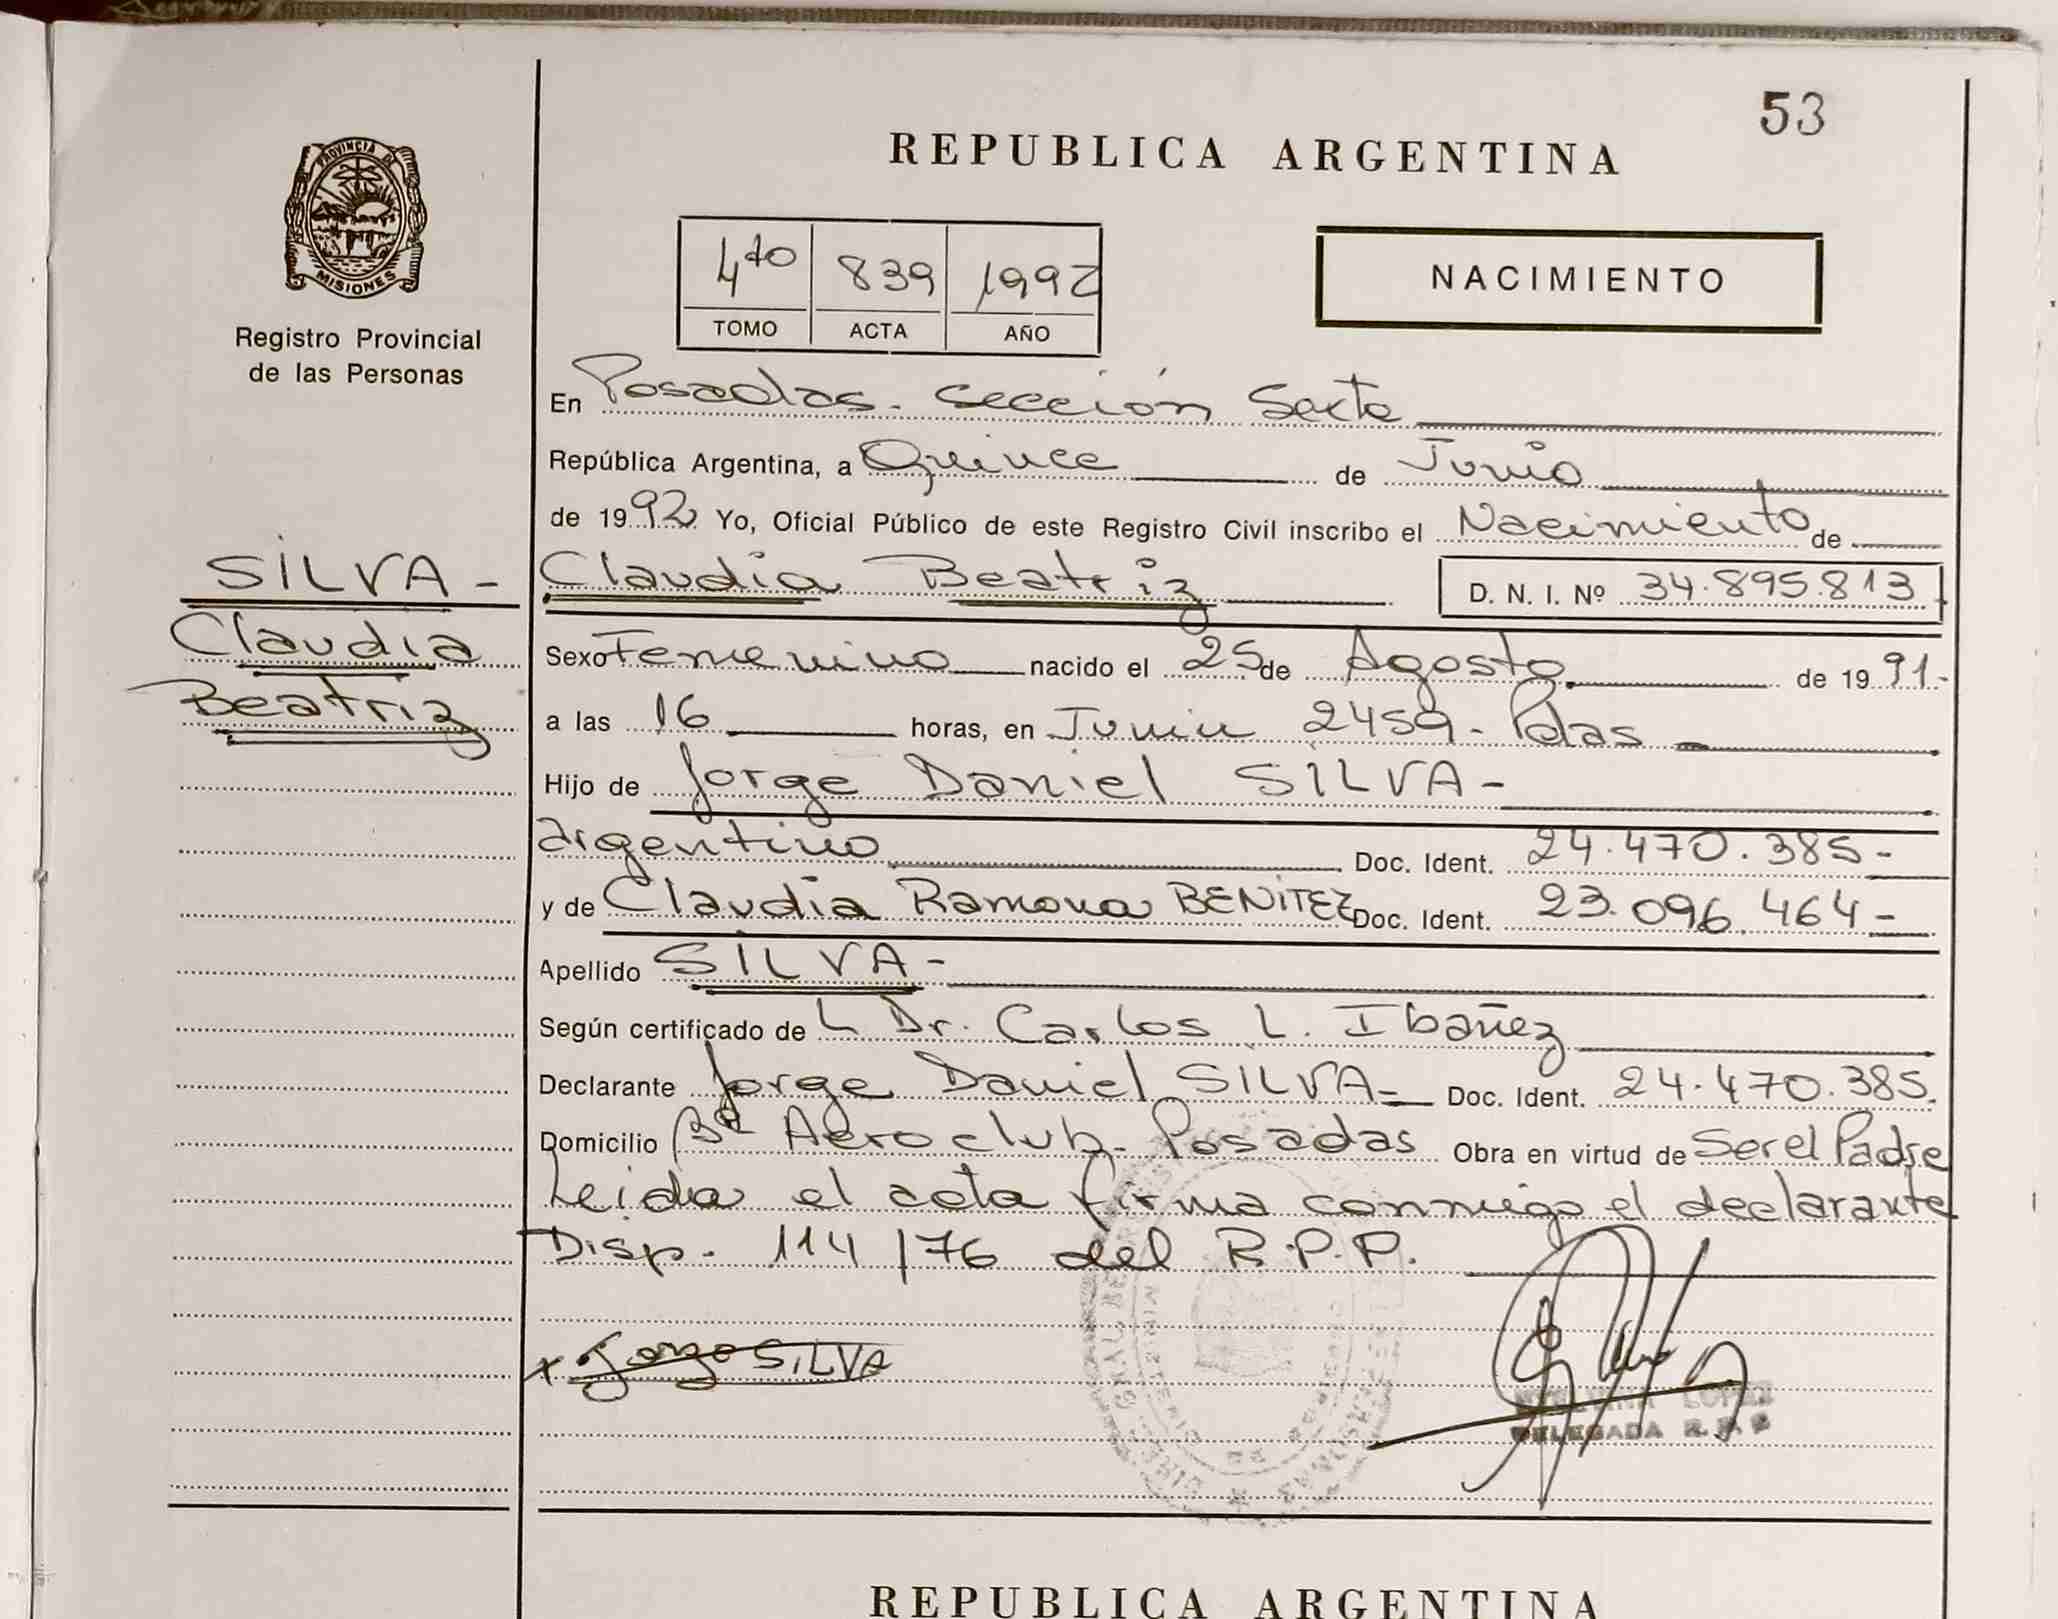 53
REPUBLICA ARGENTINA
PROVINCIA DE
MISIONES
Registro Provincial
de las Personas
4to 839 1992
TOMO ACTA AÑO
NACIMIENTO
En Posadas. Sección Sexta
República Argentina, a Quince de Junio
de 1992 Yo, Oficial Público de este Registro Civil inscribo el Nacimiento de
SILVA-
Claudia
Beatriz
Claudia Beatriz D. N. I. Nº 34.895.813
Sexo Femenino nacido el 25 de Agosto de 1991.-
a las 16 horas, en Junin 2459- Pdas
Hijo de Jorge Daniel SILVA-
argentino Doc. Ident. 24.470.385-
y de Claudia Ramona BENITEZ Doc. Ident. 23.096.464-
Apellido SILVA-
Según certificado de Dr. Carlos L. Ibañez
Declarante Jorge Daniel SILVA- Doc. Ident. 24.470.385.
Domicilio Bº Aeroclub- Posadas Obra en virtud de Ser el Padre
Leida el acta firma conmigo el declarante
Disp. 114/76 del R.P.P.
x Jorge SILVA
LOPEZ
DELEGADA R.P.P
REPUBLICA ARGENTINA